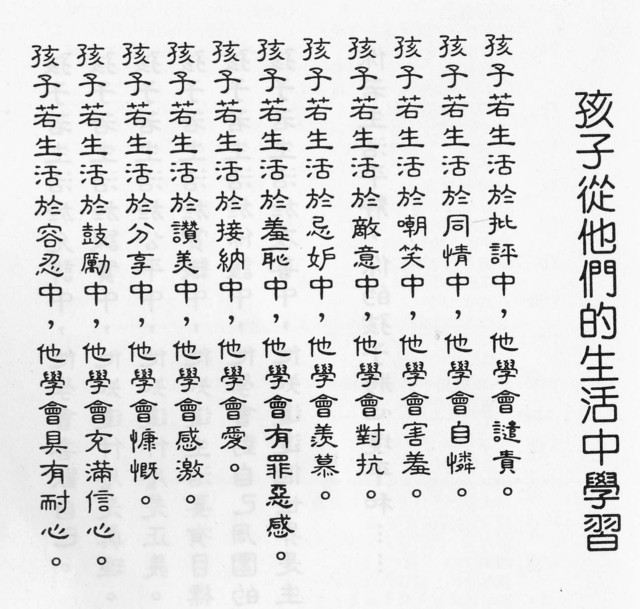 孩子從他們的生活中學習
孩子若生活於批評中，他學會譴責。
孩子若生活於同情中，他學會自憐。
孩子若生活於嘲笑中，他學會害羞。
孩子若生活於敵意中，他學會對抗。
孩子若生活於忌妒中，他學會羨慕。
孩子若生活於羞恥中，他學會有罪惡感。
孩子若生活於接納中，他學會愛。
孩子若生活於讚美中，他學會感激。
孩子若生活於分享中，他學會慷慨。
孩子若生活於鼓勵中，他學會充滿信心。
孩子若生活於容忍中，他學會具有耐心。